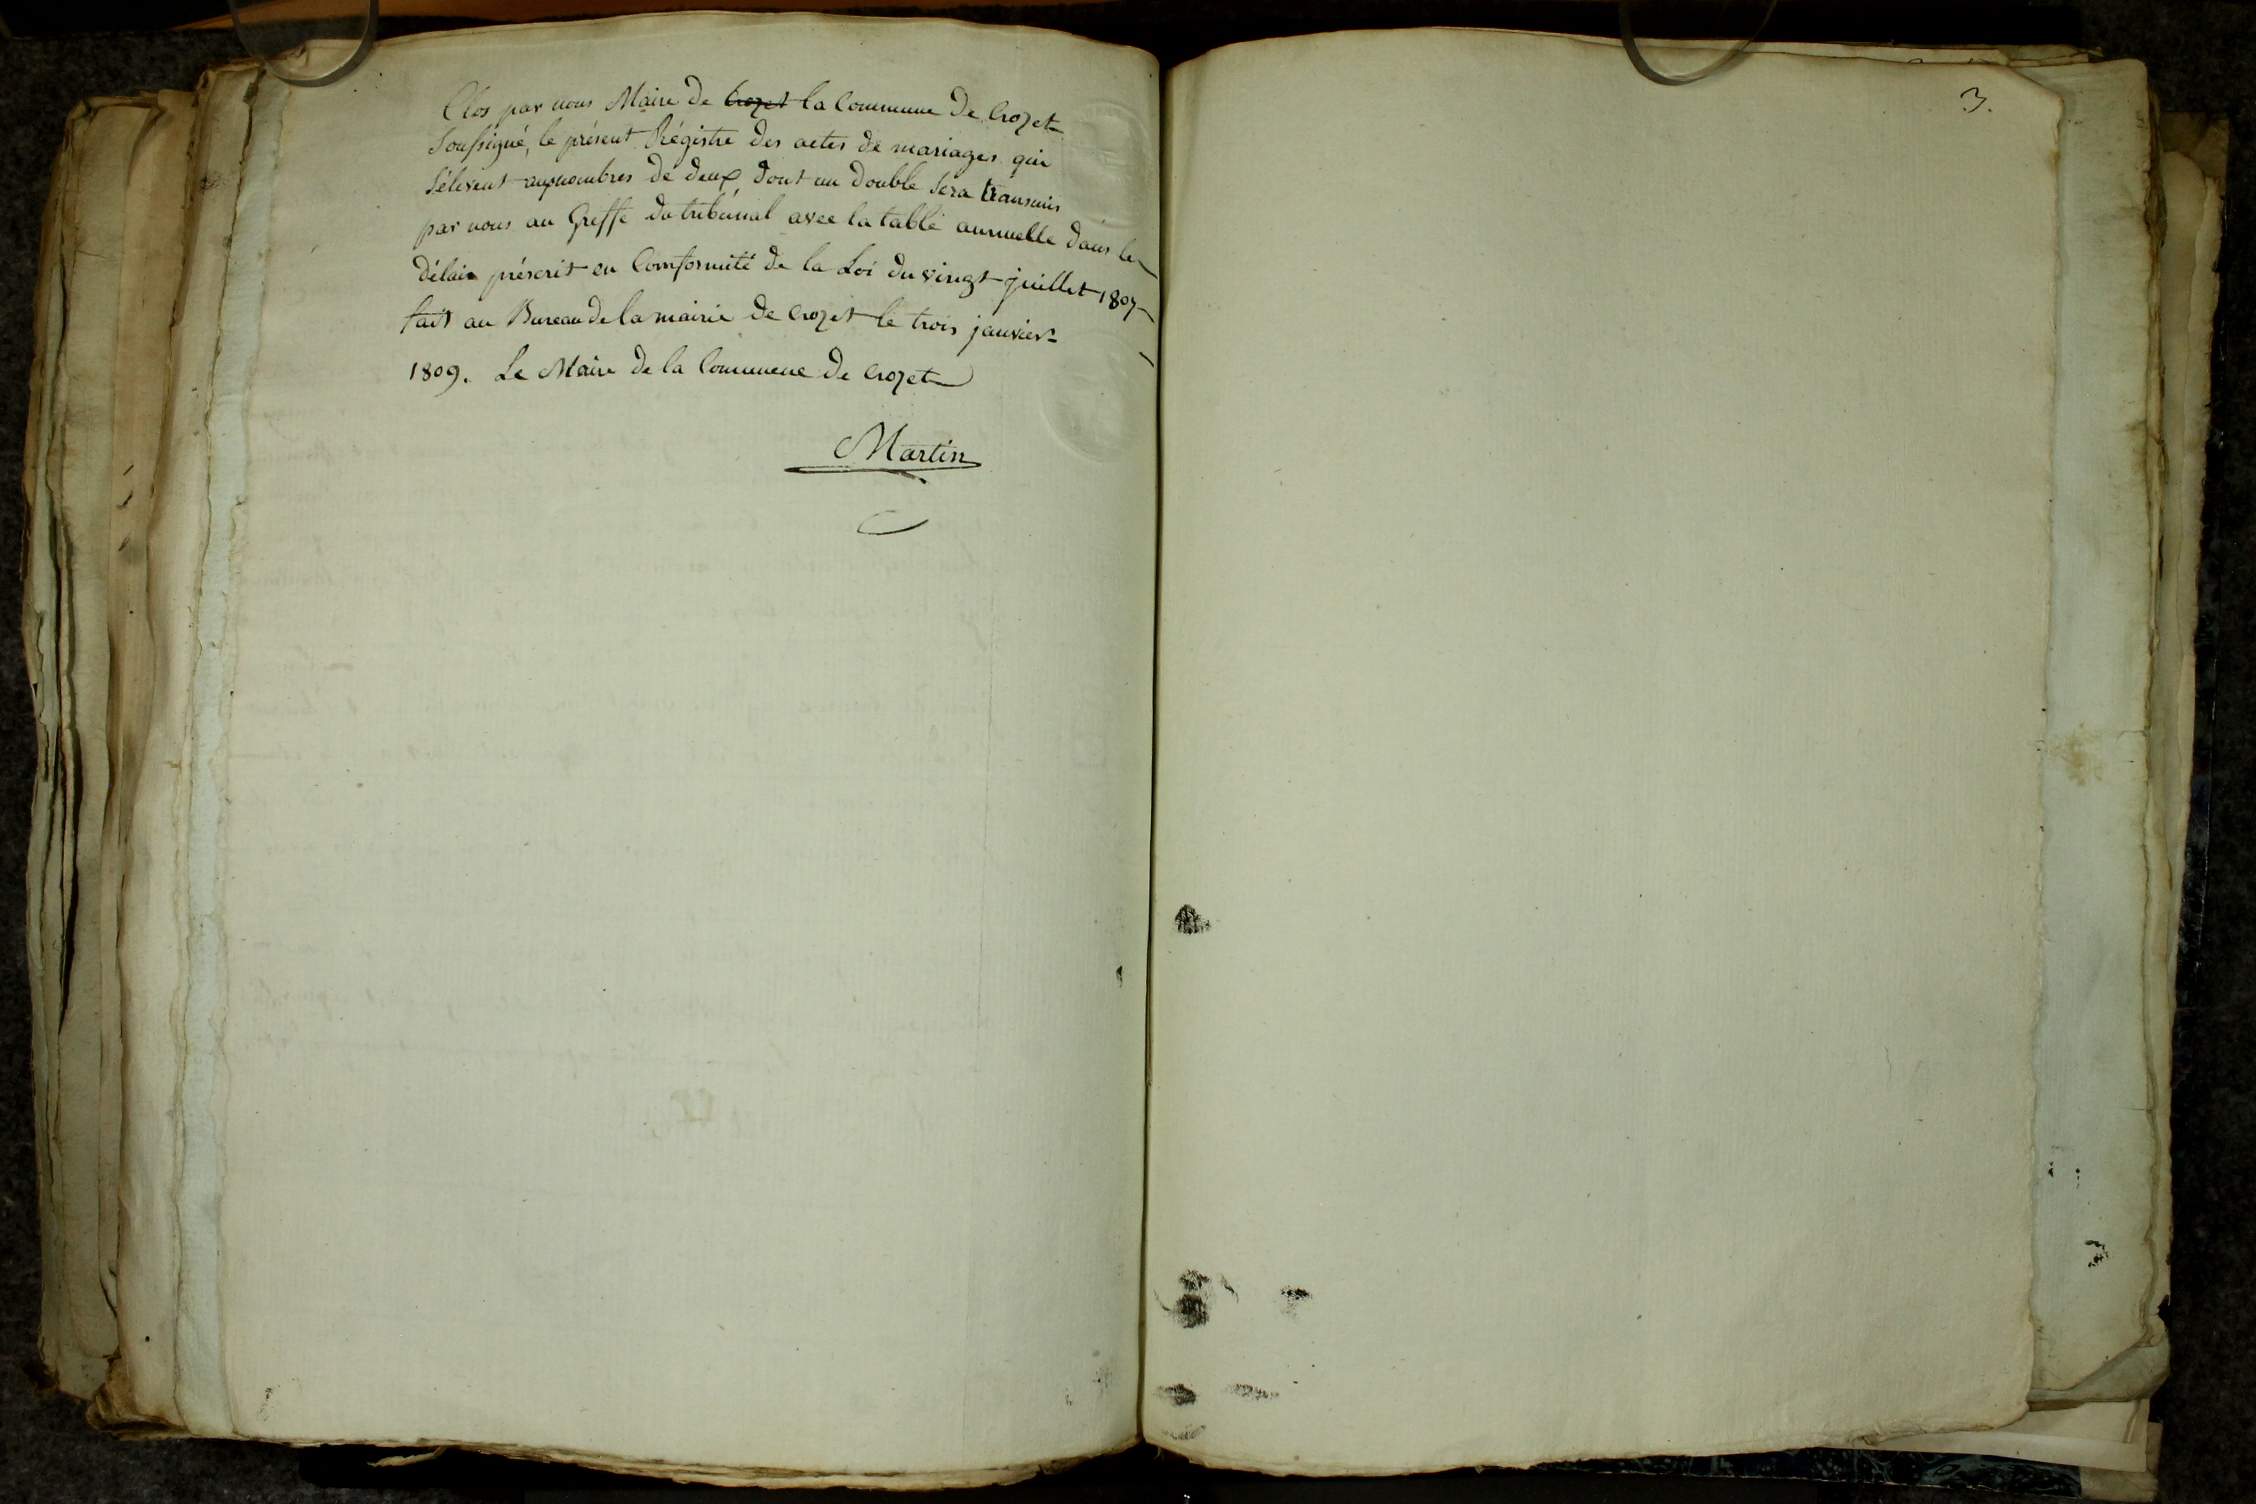 Clos par nous Maire de Crozet la Commune de Crozet
Soussigné, le présent Régistre des actes de mariages qui
s'élevent au nombres de deux, dont un double sera transmis
par nous au Greffe du tribunal avec la table annuelle dans le
délai préscrit en Comformité de la Loi du vingt juillet 1807
fait au Bureau de la mairie de Crozet le trois janvier
1809. Le Maire de la Commune de Crozet
Martin
3.